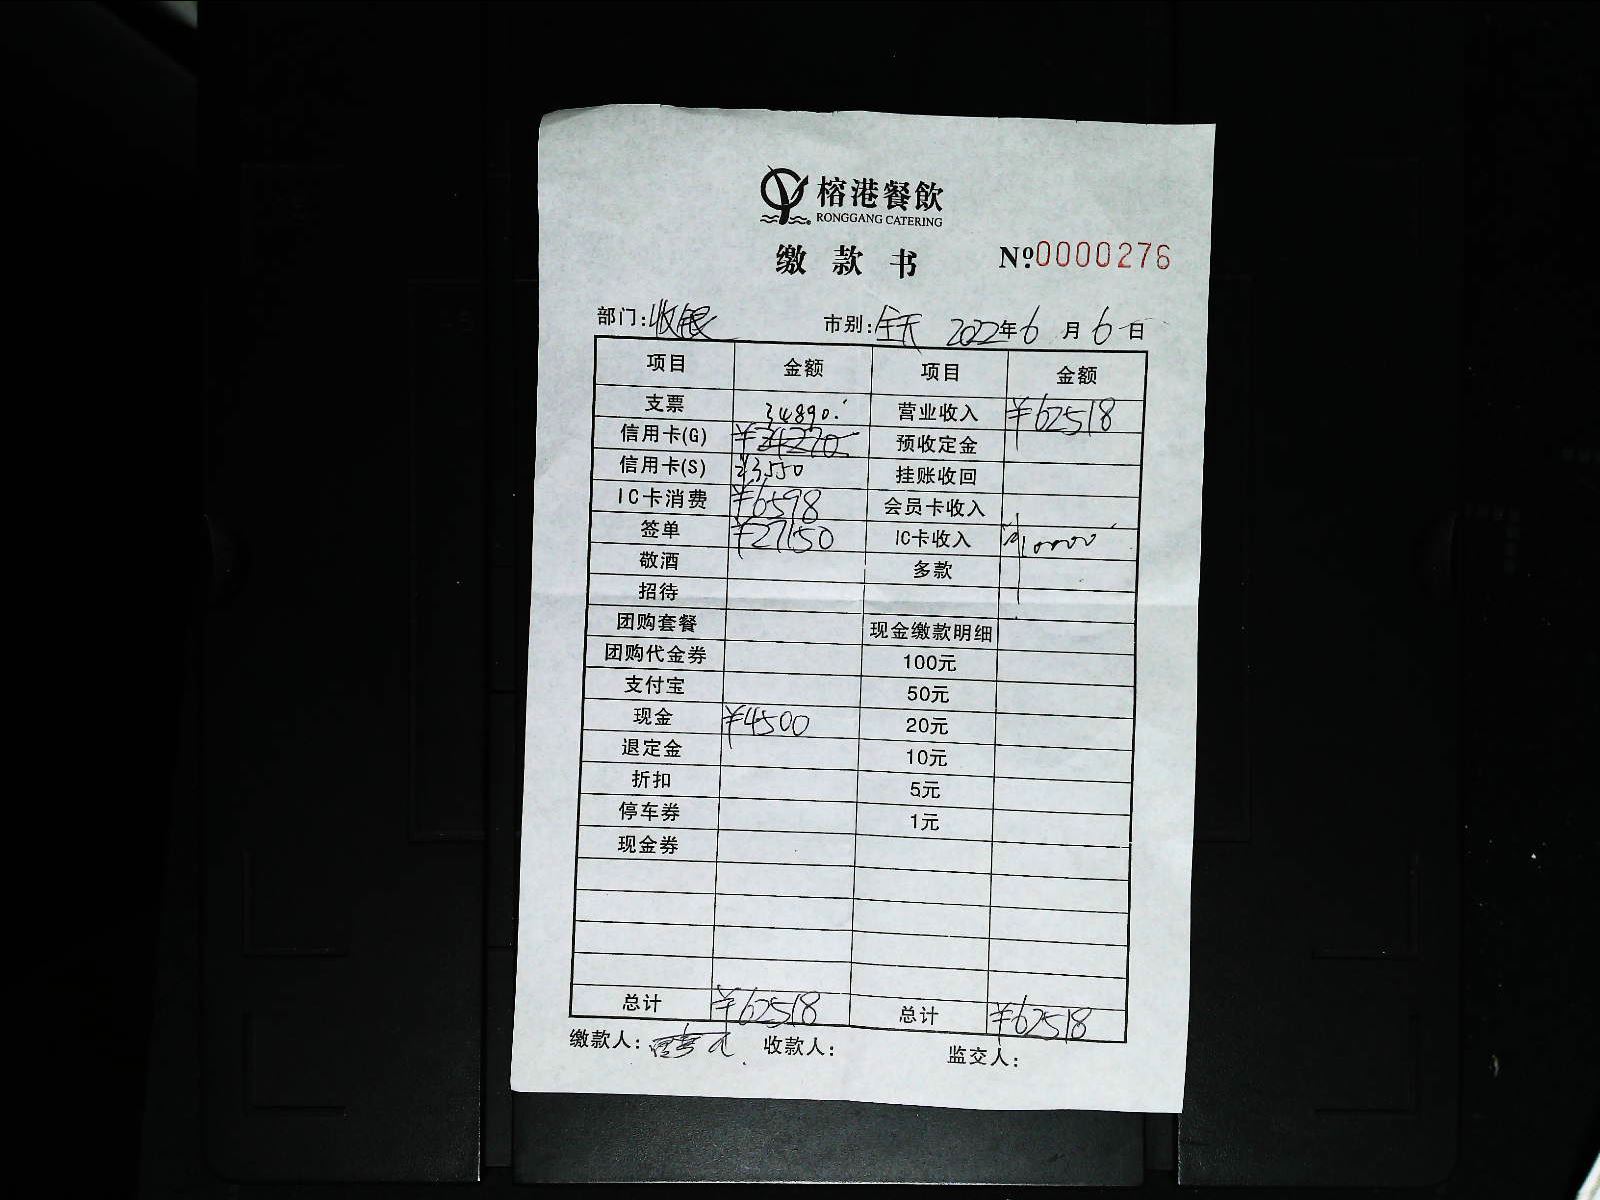 榕港餐飲
RONGGANG CATERING
缴款书 №0000276
部门:收银 市别:全天 2022年6月6日
项目 金额 项目 金额
支票 34890. 营业收入 ¥62518
信用卡(G) ¥24270 预收定金
信用卡(S) ¥3550 挂账收回
IC卡消费 ¥6598 会员卡收入
签单 ¥27150 IC卡收入 ¥10000
敬酒 多款
招待
团购套餐 现金缴款明细
团购代金券 100元
支付宝 50元
现金 ¥4500 20元
退定金 10元
折扣 5元
停车券 1元
现金券
总计 ¥62518 总计 ¥62518
缴款人: 收款人: 监交人: